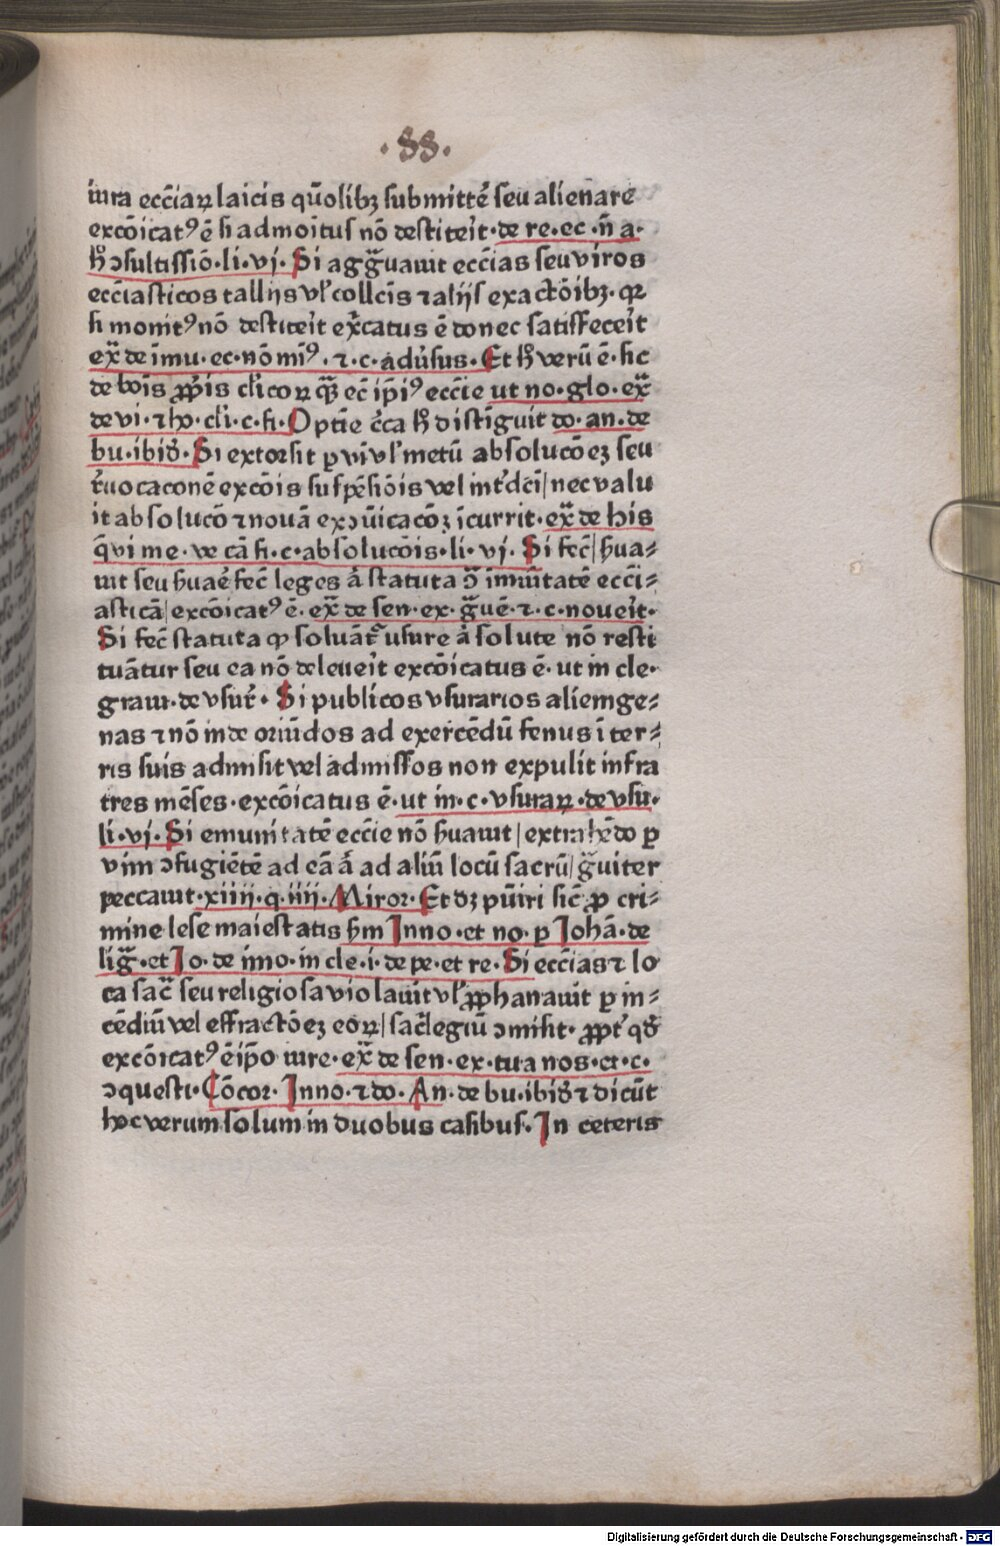 .88.
iura ecc̄iaꝝ laicis qūolibꝫ submittē seu alienare
excōicatꝰ ē si admoītus nō destiteīt·de re·ec·n̄ a·
h̄ ↄsultissiō·li·vj· Si agg̃uauit ecc̄ias seu viros
ecc̄iasticos tallijs vl̓ collc̄is ⁊ alijs exactōibꝫ· qꝛ
si monitꝰ nō destiteīt ex̄catus ē donec satisfeceīt
ex̄ de īmu·ec·nō miꝰ·⁊·c·adūsus· Et h̄ verū ē·sic
de boīs ꝓp̄is cl̓icoꝝ qꝫ̄ ec̄ ip̄iꝰ ecc̄ie ut no·glo·ex̄
de vi·⁊ ho·cl̓i·c·fi· Optīe c̄ca h̄ distīguit do·an·de
bu·ibid̄· Si extorsit ꝑ vī vl̓ metū absolucōeꝫ seu
r̄uocaconē excōis suspēsiōis vel int̓dc̄i|nec valu
it absolucō ⁊ nouā exↄūicacōꝫ īcurrit·ex̄ de his
q̄ vi me·ve cā fi·c·absolucōis·li·vj· Si fec̄|s̄ua⸗
uit seu s̄uaē fec̄ leges aͥ statuta ↄ̄ imūitatē ecc̄i⸗
asticā|excōicatꝰ ē·ex̄ de sen·ex·g̃uē·⁊·c·noueīt·
Si fec̄ statuta ꝙ soluāt᷑ usure aͥ solute nō resti
tuātur seu ea nō deleueīt excōicatus ē·ut in cle·
graui·de vsur̄· Si publicos vsurarios aliemge⸗
nas ⁊ nō inde oriūdos ad exercēdū fenus ī ter⸗
ris suis admisit vel admissos non expulit infra
tres mēses·excōicatus ē·ut in·c·vsuraꝝ·de vsu·
li·vj· Si emunitatē ecc̄ie nō s̄uauit|extrahēdo ꝑ
vim ↄfugiētē ad eā aͥ ad aliū locū sacrū|g̃uiter
peccauit·xiiij·q·iiij·Miror· Et dꝫ pūiri sic̄ ꝓ cri⸗
mine lese maiestatis s̄m Inno·et no·ꝑ Johā·de
lig̃·et Jo·de imo·in cle·i·de pe·et re· Si ecc̄ias ⁊ lo
ca sac̄ seu religiosa violauit vl̓ ꝓphanauit ꝑ in⸗
cēdiū vel effractōeꝫ eoꝝ|sac̄legiū ↄmisit· ꝓpt̓ qd̄
excōicatꝰ ē ip̄o iure·ex̄ de sen·ex·tua nos·et·c·
ↄquesti· Cōcor· Inno·⁊ do· An·de bu·ibid̄ ⁊ dicūt
hoc verum solum in duobus casibus· In ceteris
Digitalisierung gefördert durch die Deutsche Forschungsgemeinschaft - DFG